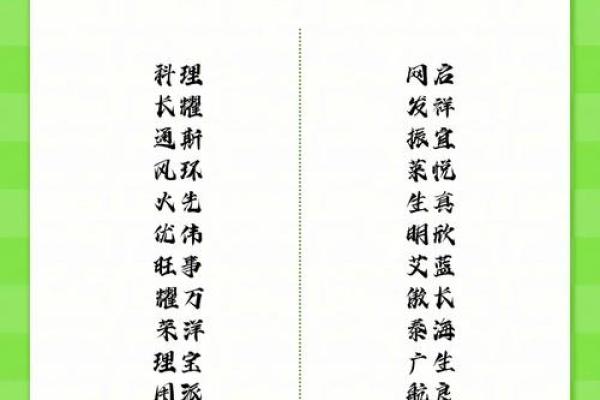 科理
长耀
通斯
风环
火先
优伟
旺事
耀万
荣洋
理宝
用派
网启
发祥
振宜
莱悦
生真
明欣
艾蓝
傲长
泰海
广生
航良